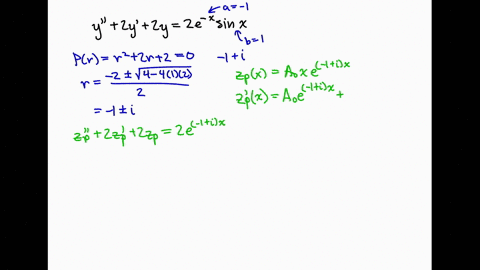 a=-1
y''+2y'+2y=2e^{-x} sin x
b=1
P(r)=r²+2r+2=0 -1+i
r= \frac{-2±\sqrt{4-4(1)(2)}}{2}
=-1±i
z_p''+2z_p'+2z_p=2e^{(-1+i)x}
z_p(x)=A_0xe^{(-1+i)x}
z_p'(x)=A_0e^{(-1+i)x}+